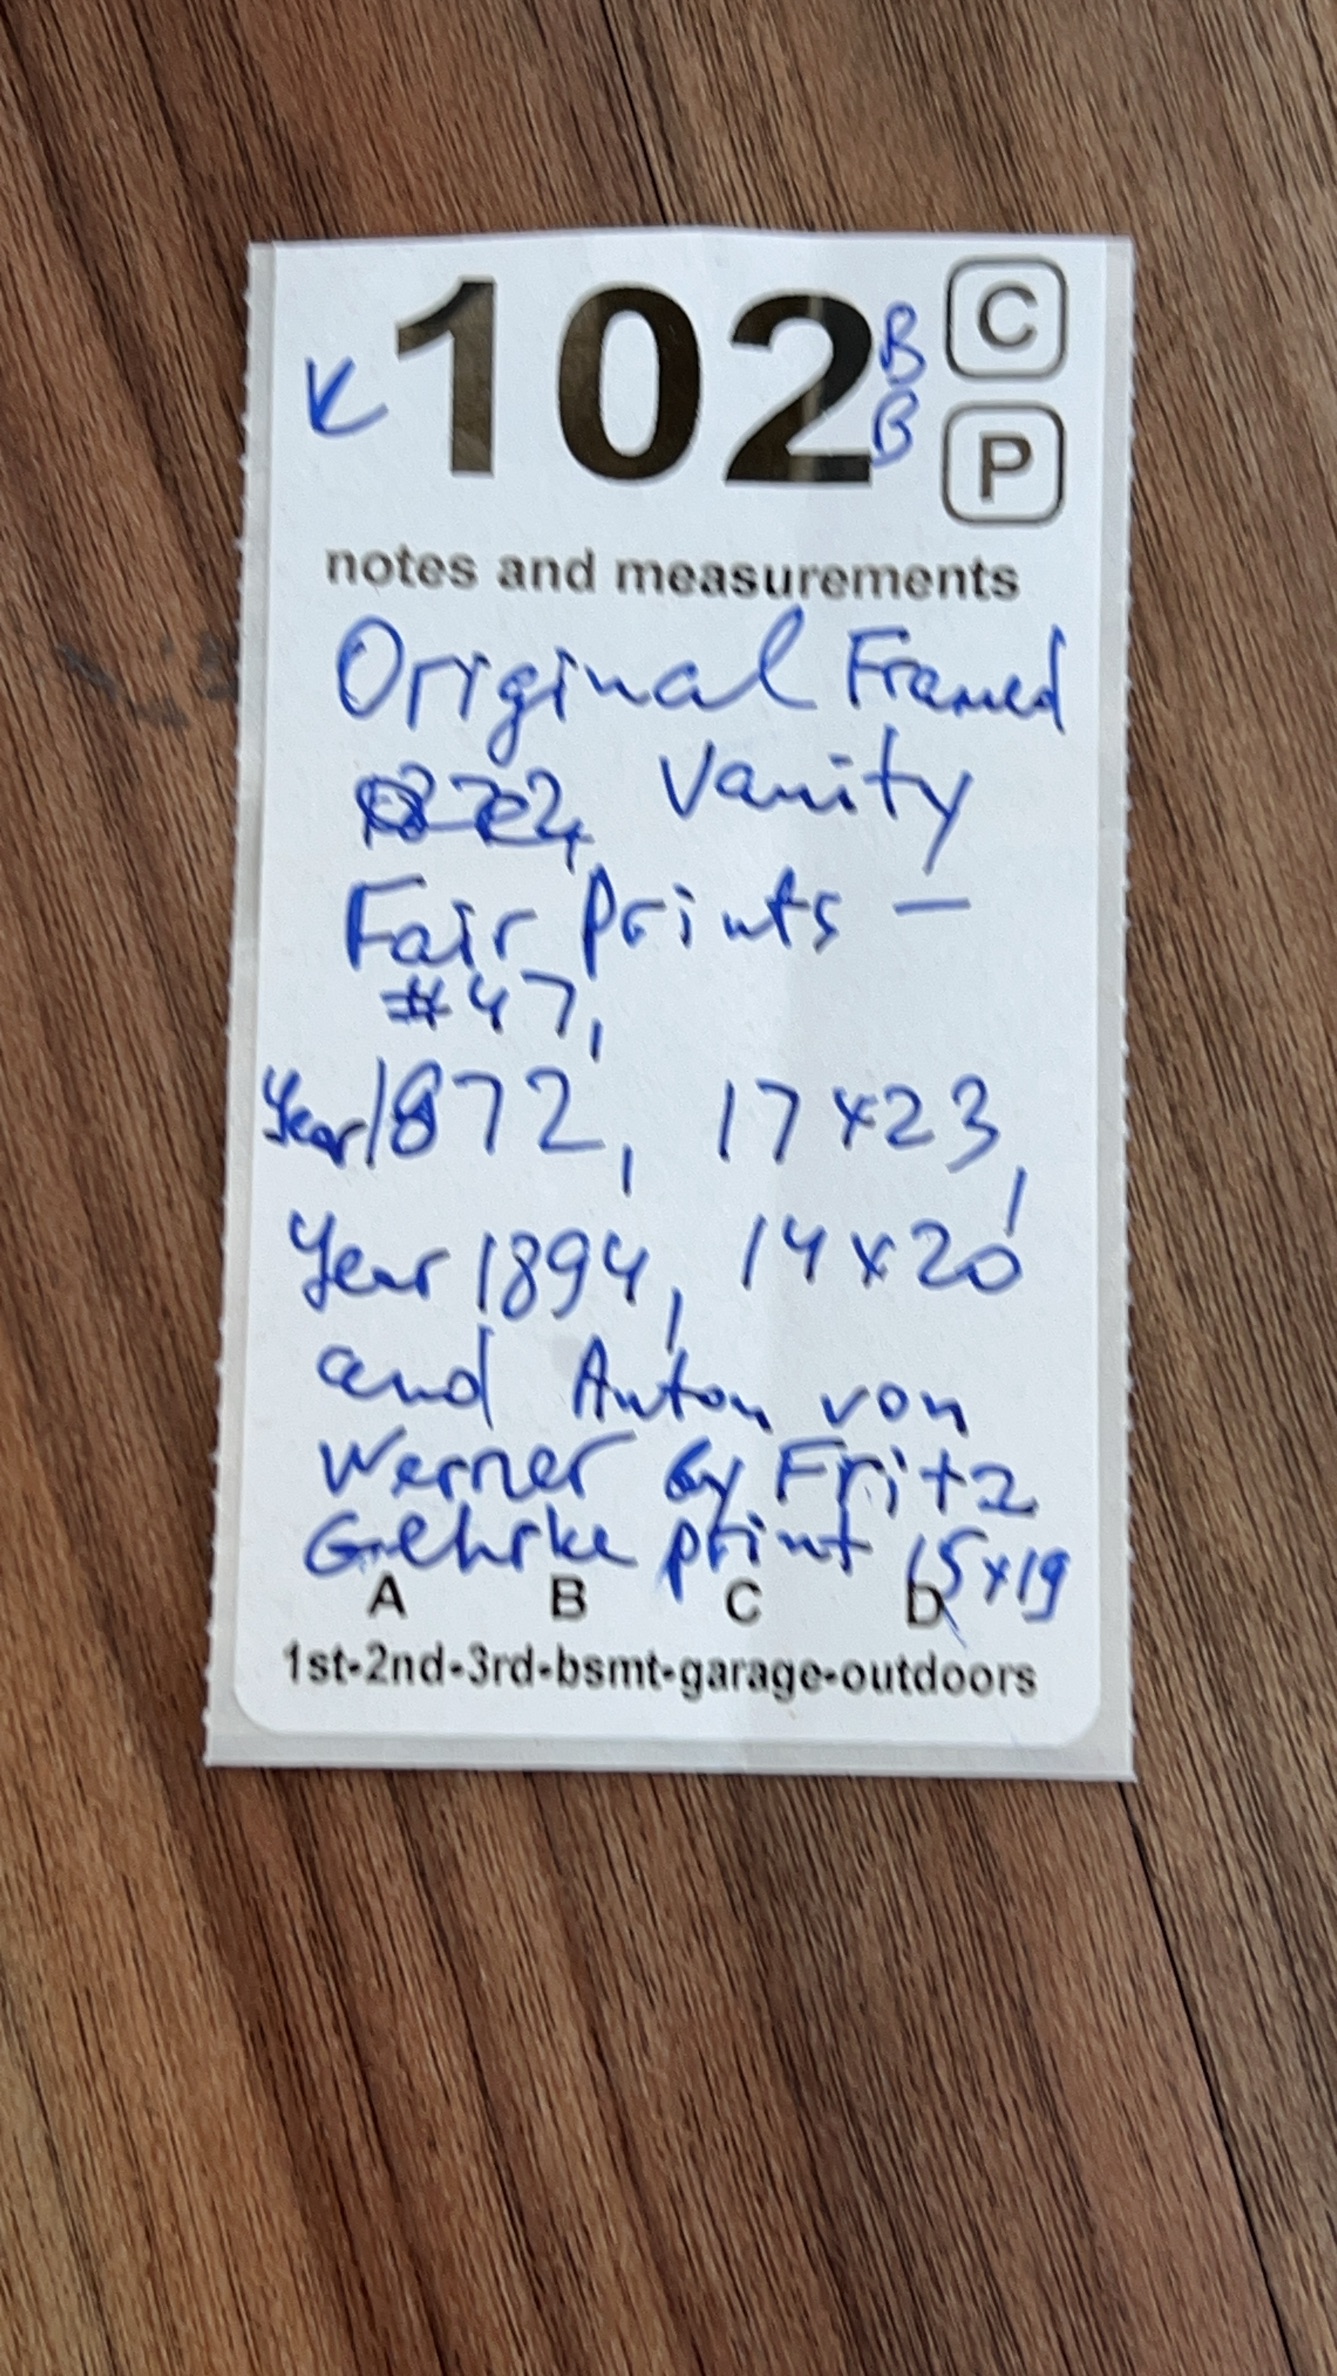 K 102 B C
B P
notes and measurements
Original Framed
Vanity
Fair Prints —
#47,
Year 1872, 17x23,
Year 1894, 14x20
and Anton von
Werner by Fritz
Gehrke print 15x19
A B C D
1st-2nd-3rd-bsmt-garage-outdoors